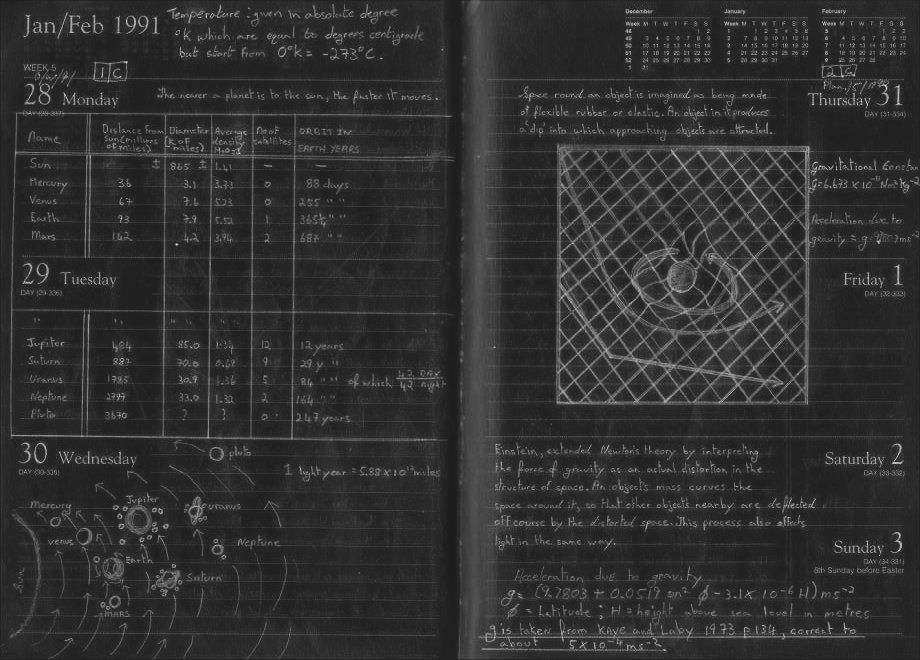 Jan/Feb 1991
Temperature: given in absolute degree
°K which are equal to degrees centigrade
but start from 0°K = -273°C.
WEEK 5
1 C
28 Monday
The nearer a planet is to the sun, the faster it moves.
Name Distance from sun (millions of miles) Diameter (K of miles) Average density No of satellites ORBIT IN EARTH YEARS
Sun ± 865 ± 1.41 — —
Mercury 36 3.1 3.73 0 88 days
Venus 67 7.6 5.23 0 225 " "
Earth 93 7.9 5.52 1 365¼ " "
Mars 142 4.2 3.94 2 687 " "
29 Tuesday
DAY (29-336)
Jupiter 484 85.0 1.34 12 12 years
Saturn 887 70.8 0.69 9 29 y "
Uranus 1785 30.9 1.36 5 84 " " of which 42 DAY
42 night
Neptune 2797 33.0 1.32 2 164 " "
Pluto 3670 ? ? 0 247 years
30 Wednesday
DAY (30-335)
1 light year = 5.88 × 10¹² miles
pluto
Mercury
Jupiter
uranus
venus
Neptune
Earth
Saturn
Sun
MARS
December
January
February
Week M T W T F S S
2 C
Thursday 31
DAY (31-334)
Space round an object is imagined as being made
of flexible rubber or elastic. An object in it produces
a 'dip' into which approaching objects are attracted.
Gravitational Constan
G=6.673 × 10⁻¹¹ Nm² kg⁻²
Acceleration due to
gravity = g =
Friday 1
DAY (32-333)
Einstein, extended Newton's theory by interpreting
the force of gravity as an actual distortion in the
structure of space. An object's mass curves the
space around it, so that other objects nearby are deflected
off course by the distorted space. This process also effects
light in the same way.
Saturday 2
DAY (33-332)
Sunday 3
DAY (34-331)
5th Sunday before Easter
Acceleration due to gravity
g = (9.7803 + 0.0519 sin² φ - 3.1 × 10⁻⁶ H) ms⁻²
φ = Latitude ; H = height above sea level in metres
g is taken from Kaye and Laby 1973 p 134, correct to
about 5 × 10⁻⁴ ms⁻².